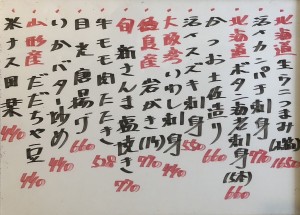 北海道生ウニつまみ(小箱) 1650
活〆カンパチ刺身 770
北海道ボタン海老刺身(5本) 660
かつお土佐造り 660
活〆スズキ刺身 550
大阪湾いわし刺身 440
徳島産岩がき(1ケ) 770
旬新さんま塩焼き 770
牛モモ肉たたき 528
目光唐揚げ 660
いかバター炒め 660
山形産だだちゃ豆 440
米ナス田楽 440